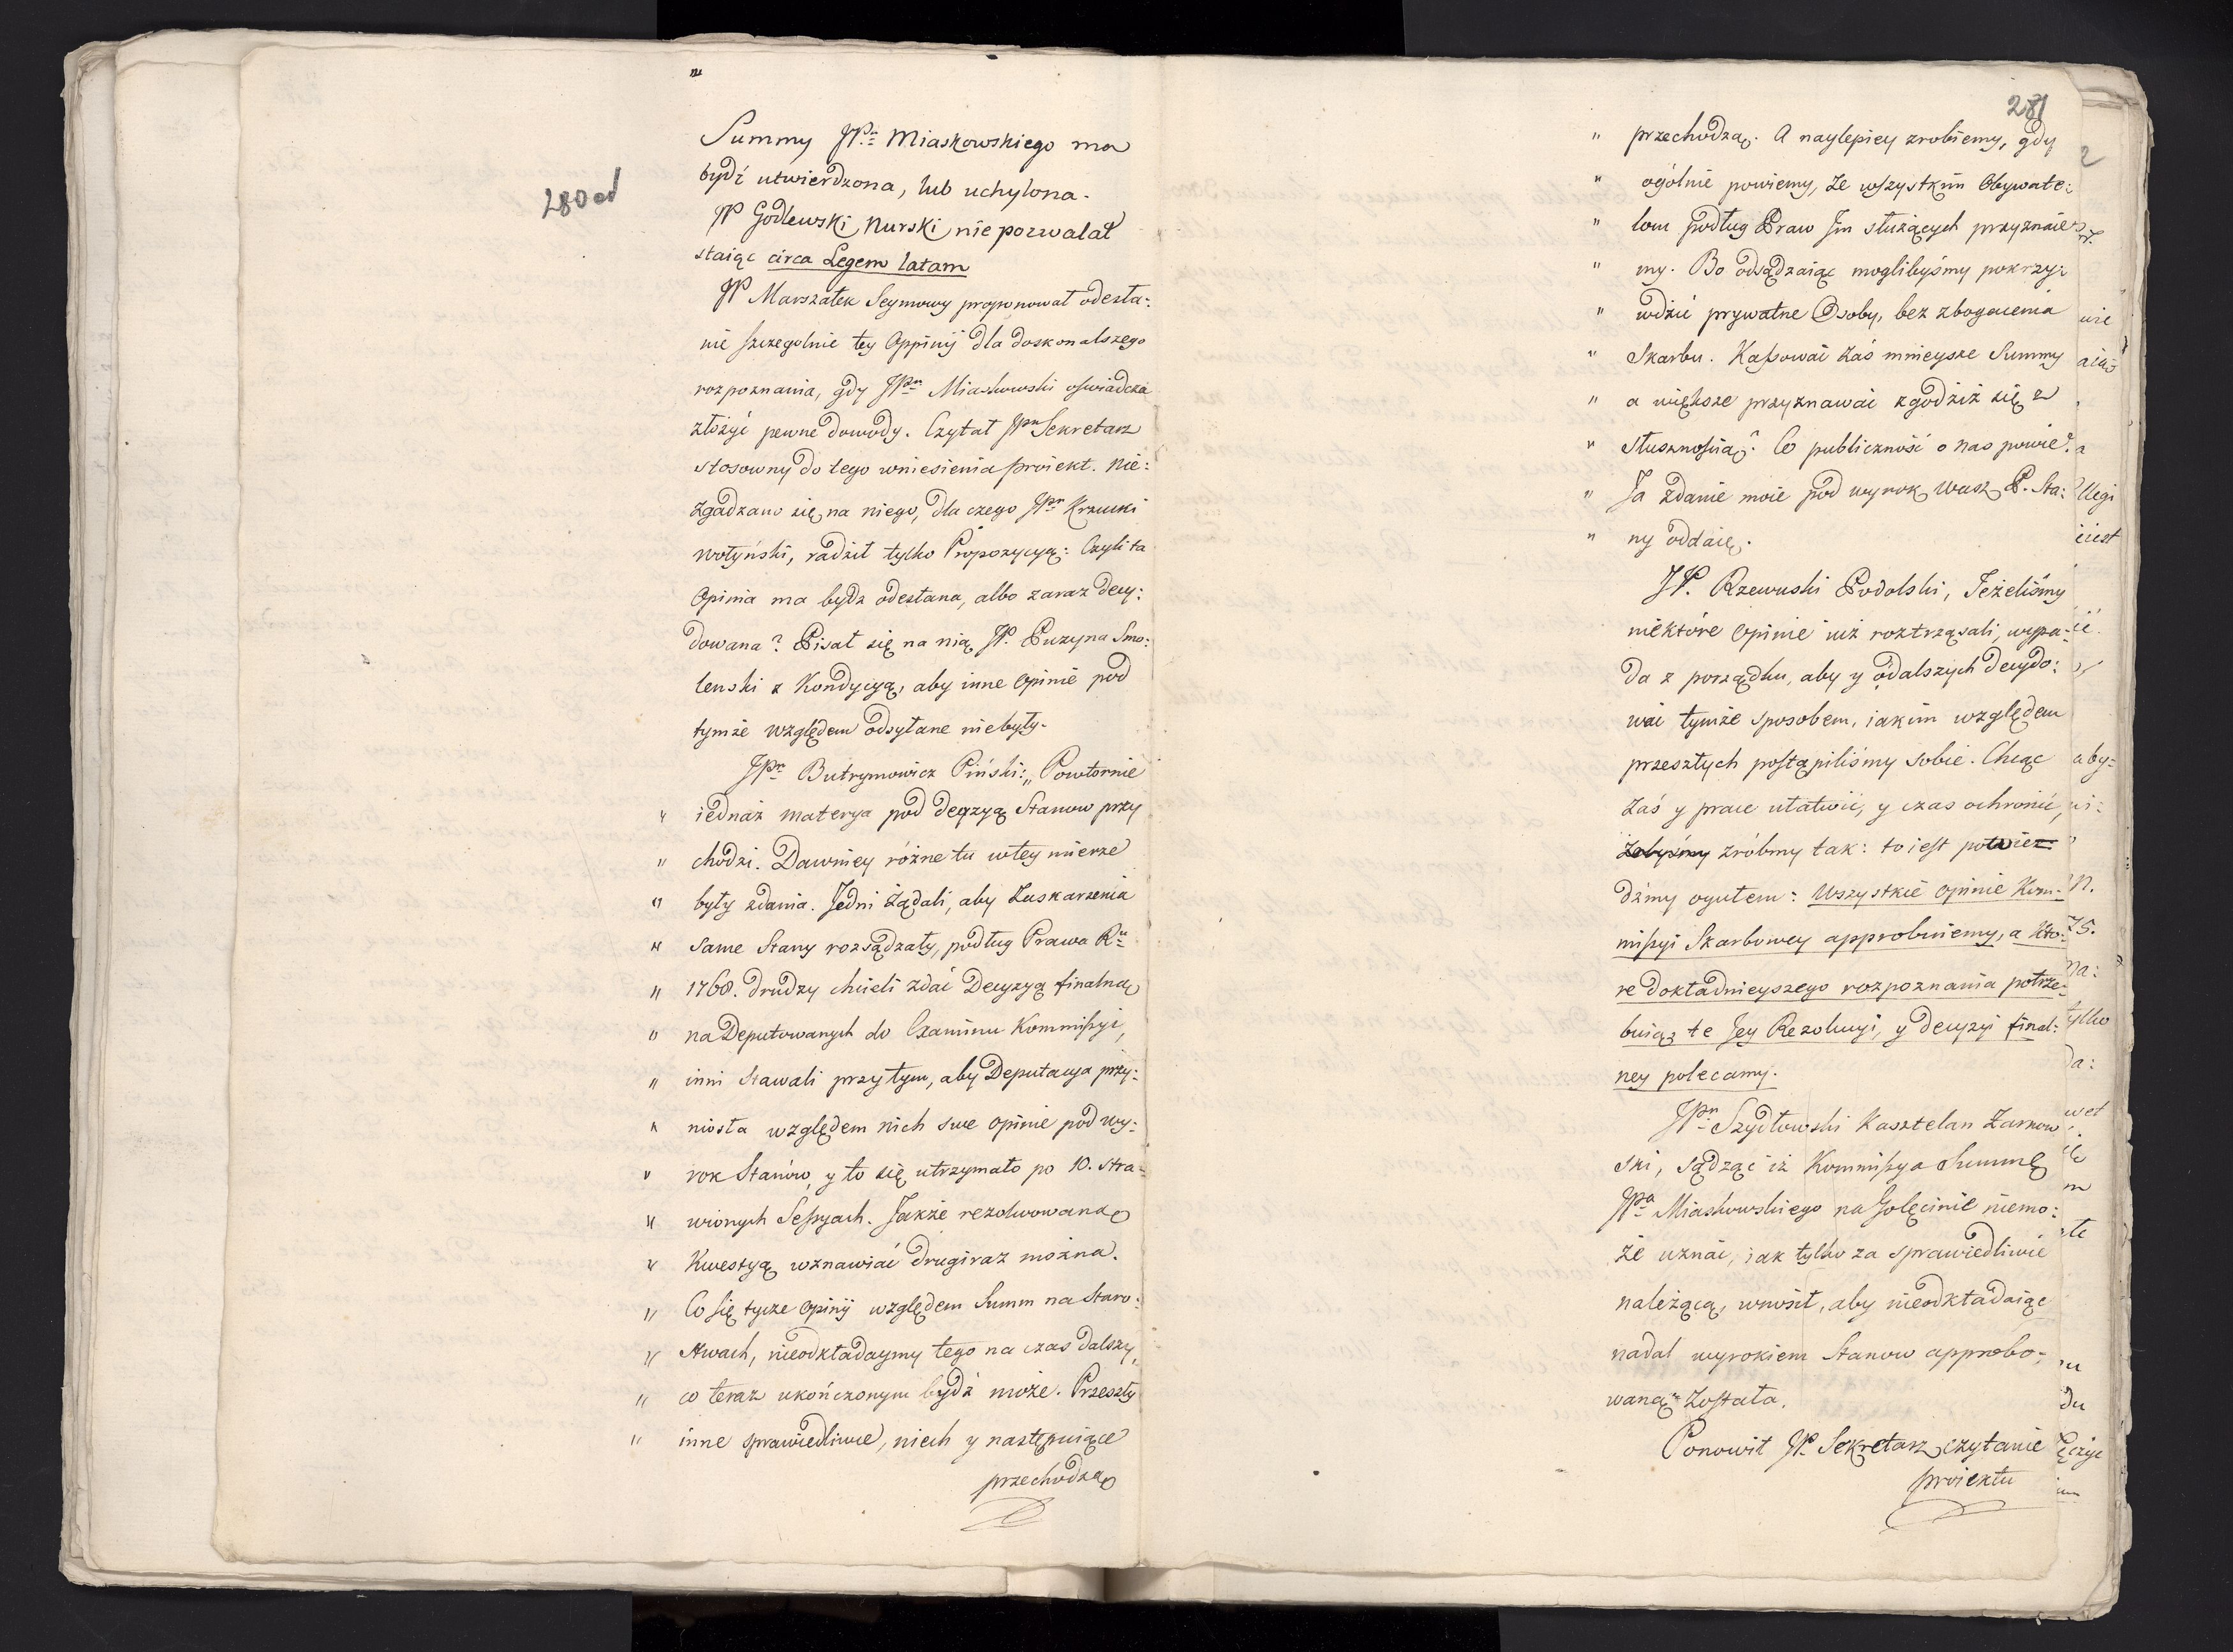 280od
Summy JPn Miaskowskiego ma
bydź utwierdzona, lub uchylona.
JP Godlewski Nurski nie pozwalał
staiąc circa Legem latam
JP Marszałek Seymowy proponował odesła:
nie szczegolnie tey Oppinij dla doskonalszego
rozpoznania, gdy JPn Miaskowski oswiadcza
złożyć pewne dowody. Czytał JPn Sekretarz
stosowny do tego wniesienia proiekt. Nie:
zgadzano się na niego, dla czego JPn Krzucki
Wołyński, radził tylko Propozycyą: Czyli ta
Opinia ma bydz odesłana, albo zaraz decy:
dowana? Pisał się na nią JP. Puzyna Smo:
lenski z Kondycyą, aby inne Opinie pod
tymże względem odsyłane niebyły.
JPn Butrymowicz Piński: „Powtornie
" iednaż materya pod decyzyą Stanow przy
" chodzi. Dawniey różne tu wtey mierze
" były zdania. Jedni żądali, aby Zaskarzenia
" same Stany rozsądzały, podług Prawa Ru
" 1768. drudzy chcieli zdać Decyzyą finalną
" na Deputowanych do Examinu Kommissyi,
" inni stawali przytym, aby Deputacya przy:
" niosła względem nich swe opinie pod wy:
" rok Stanów, y to się utrzymało po 10. stra:
" wionych Sessyach. Jakże rezolwowaną
" Kwestyą wznawiać drugiraz można.
" Co się tycze Opinij względem Summ na Staro:
" stwach, nieodkładaymy tego na czas dalszy,
" co teraz ukończonym bydź może. Przeszły
" inne sprawiedliwie, niech y następuiące
przechodzą
281
" przechodzą. A naylepiey zrobiemy, gdy
" ogólnie powiemy, że wszystkim Obywate:
" lom podług Praw Jm służących przyznaie:
" my. Bo odsądzaiąc moglibyśmy pokrzy:
" wdzić prywatne Osoby, bez zbogacenia
" Skarbu. Kassować zaś mnieysze Summy
" a większe przyznawać zgodziż się z
" słusznością? Co publiczność o nas powie?
" Ja zdanie moie pod wyrok Wasz P. Sta:
" ny oddaię.
JP. Rzewuski Podolski, Jeżeliśmy
niektóre Opinie iuż roztrząsali, wypa:
da z porządku, aby y o dalszych decydo:
wać tymże sposobem, iakim względem
przeszłych postąpiliśmy sobie. Chcąc
zaś y prace ułatwić, y czas ochronić,
żebyśmy zróbmy tak: to iest potwier:
dźmy ogułem: Wszystkie opinie Kom:
missyi Skarbowey approbuiemy, a któ:
re dokładnieyszego rozpoznania potrze:
buią, te Jey Rezolucyi, y decyzyi final:
ney polecamy.
JPn Szydłowski Kasztelan Żarnow
ski, sądząc iż Kommissya Summę
JPa Miaskowskiego na Golęcinie niemo:
że uznać, iak tylko za sprawiedliwie
należącą, wnosił, aby nieodkładaiąc
nadal wyrokiem Stanow approbo:
waną została.
Ponowił JP. Sekretarz czytanie
proiektu